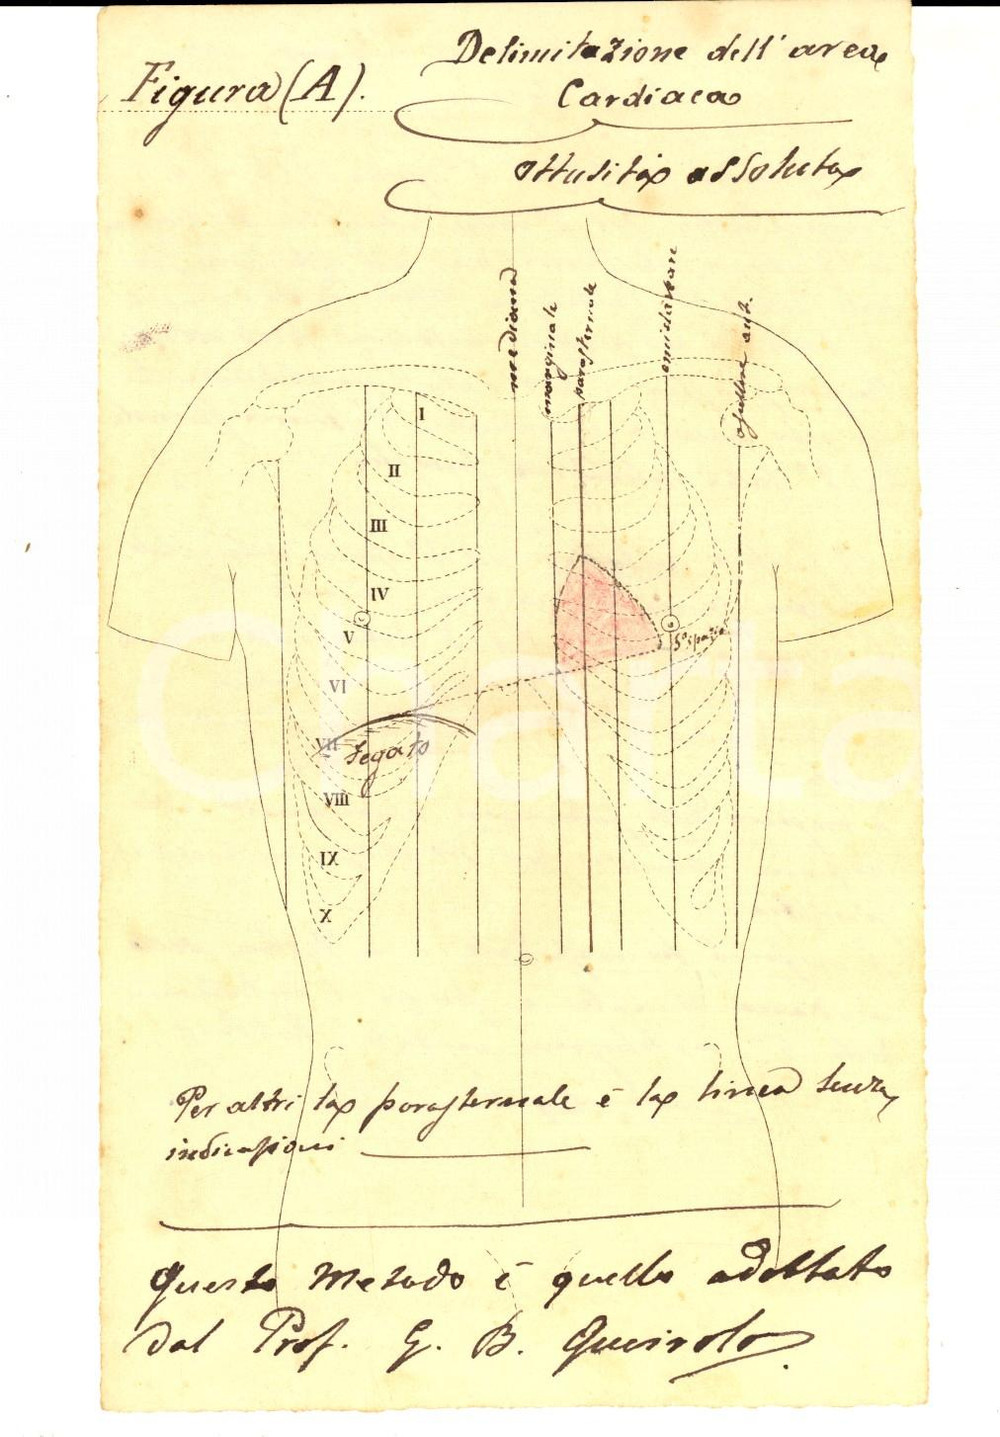 Figura (A).
Delimitazione dell'area
Cardiaca
Ottusità assoluta
mediana
marginale
parasternale
emiclaveare
ascellare ant.
I
II
III
IV
V
5° spazio
VI
VII
Fegato
VIII
IX
X
Per altri la parasternale è la linea senza
indicazioni
Questo metodo è quello adottato
dal Prof. G. B. Queirolo
Charta